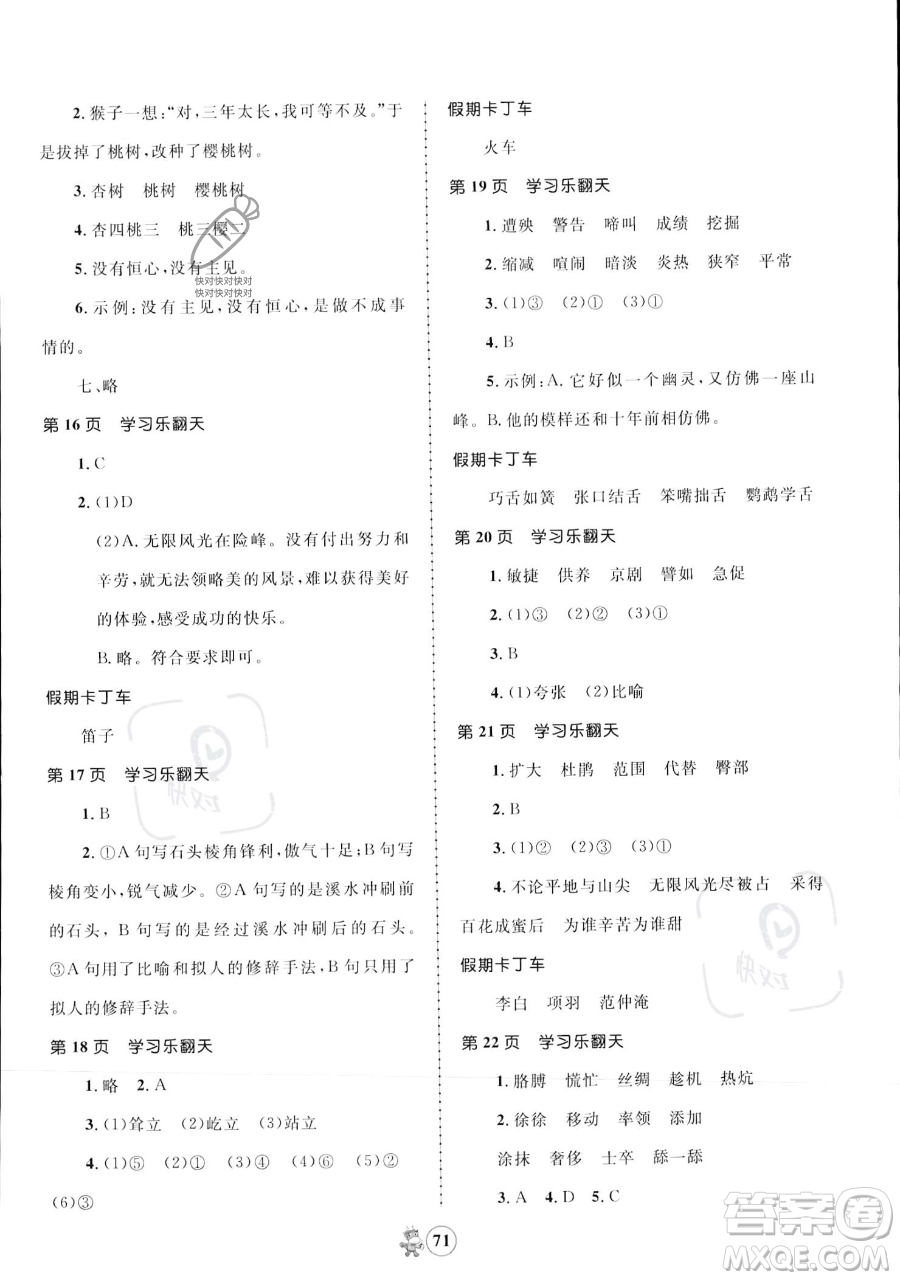 2. 猴子一想:“对,三年太长,我可等不及。”于
是拔掉了桃树,改种了樱桃树。
3. 杏树 桃树 樱桃树
4. 杏四桃三 桃三樱二
5. 没有恒心,没有主见。
快对快对快对
快对快对快对
6. 示例:没有主见,没有恒心,是做不成事
情的。
七、略
第 16 页 学习乐翻天
1. C
2. (1)D
(2)A. 无限风光在险峰。没有努力和
辛劳,就无法领略美的风景,难以获得美好
的体验,感受成功的快乐。
B. 略。符合要求即可。
假期卡丁车
笛子
第 17 页 学习乐翻天
1. B
2. ①A 句写石头棱角锋利,傲气十足;B 句写
棱角变小,锐气减少。②A 句写的是溪水冲刷前
的石头,B 句写的是经过溪水冲刷后的石头。
③A 句用了比喻和拟人的修辞手法,B 句只用了
拟人的修辞手法。
快对
第 18 页 学习乐翻天
1. 略 2. A
3. (1)耸立 (2)屹立 (3)站立
4. (1)⑤ (2)① (3)④ (4)⑥ (5)②
(6)③
假期卡丁车
火车
第 19 页 学习乐翻天
1. 遭殃 警告 啼叫 成绩 挖掘
2. 缩减 喧闹 暗淡 炎热 狭窄 平常
3. (1)③ (2)① (3)①
4. B
5. 示例:A. 它好似一个幽灵,又仿佛一座山
峰。B. 他的模样还和十年前相仿佛。
假期卡丁车
巧舌如簧 张口结舌 笨嘴拙舌 鹦鹉学舌
第 20 页 学习乐翻天
1. 敏捷 供养 京剧 譬如 急促
2. (1)③ (2)② (3)①
3. B
4. (1)夸张 (2)比喻
第 21 页 学习乐翻天
1. 扩大 杜鹃 范围 代替 臀部
2. B
3. (1)② (2)① (3)③
4. 不论平地与山尖 无限风光尽被占 采得
百花成蜜后 为谁辛苦为谁甜
快对
假期卡丁车
李白 项羽 范仲淹
第 22 页 学习乐翻天
1. 胳膊 慌忙 丝绸 趁机 热炕
2. 徐徐 移动 率领 添加
涂抹 奢侈 士卒 舔一舔
3. A 4. D 5. C
71
答案卷
MXQE.COM